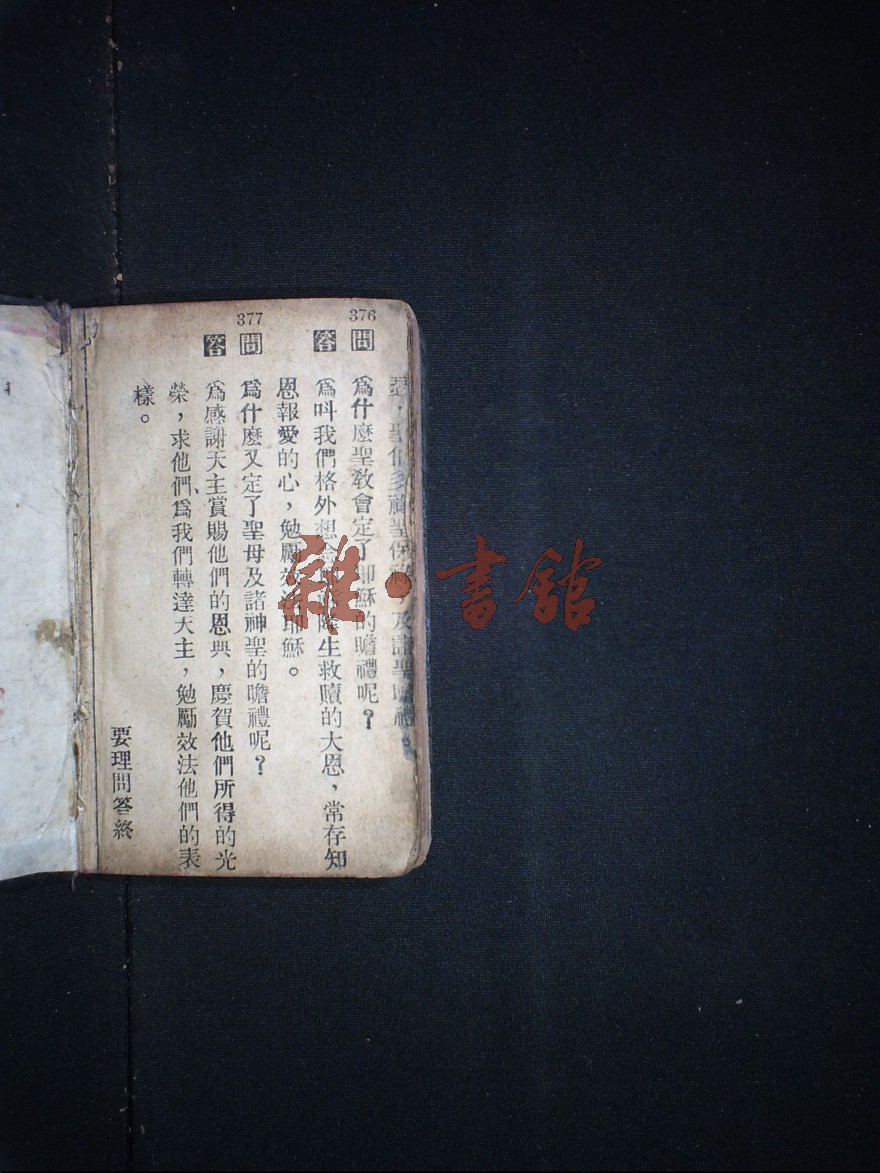 瑟，聖伯多祿聖保祿，及諸聖瞻禮。
376 問 爲什麼聖教會定了耶穌的瞻禮呢？
答 爲叫我們格外想念 降生救贖的大恩，常存知
恩報愛的心，勉勵效法耶穌。
377 問 爲什麼又定了聖母及諸神聖的瞻禮呢？
答 爲感謝天主賞賜他們的恩典，慶賀他們所得的光
榮，求他們爲我們轉達天主，勉勵效法他們的表
樣。
要理問答終
雜·書館